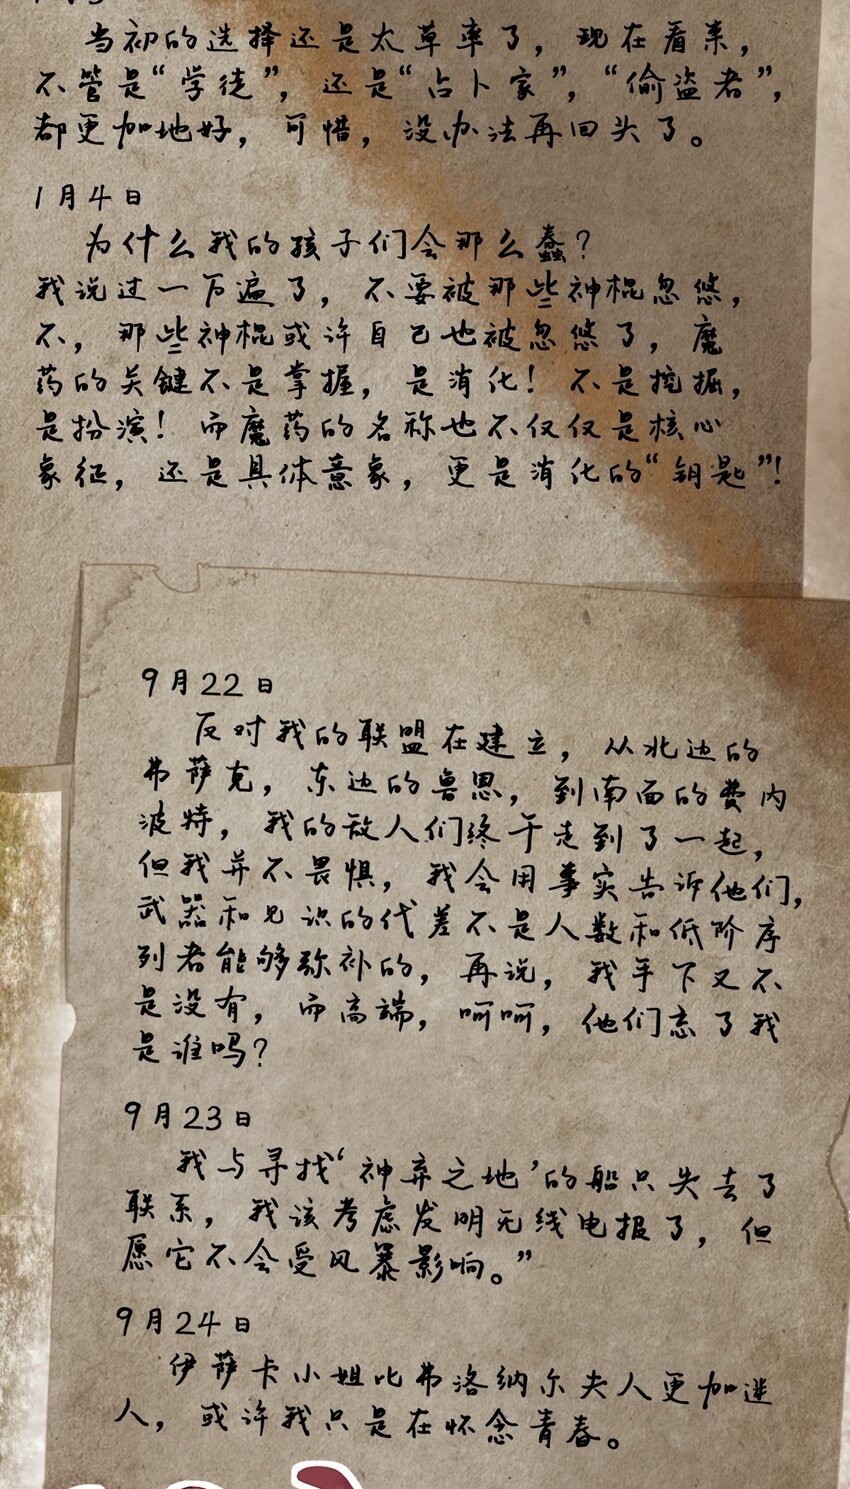 当初的选择还是太草率了，现在看来，
不管是“学徒”，还是“占卜家”，“偷盗者”，
都更加地好，可惜，没办法再回头了。
1月4日
为什么我的孩子们会那么蠢？
我说过一万遍了，不要被那些神棍忽悠，
不，那些神棍或许自己也被忽悠了，魔
药的关键不是掌握，是消化！不是挖掘，
是扮演！而魔药的名称也不仅仅是核心
象征，还是具体意象，更是消化的“钥匙”！
9月22日
反对我的联盟在建立，从北边的
弗萨克，东边的鲁恩，到南面的费内
波特，我的敌人们终于走到了一起，
但我并不畏惧，我会用事实告诉他们，
武器和见识的代差不是人数和低阶序
列者能够弥补的，再说，我手下又不
是没有，而高端，呵呵，他们忘了我
是谁吗？
9月23日
我与寻找‘神弃之地’的船只失去了
联系，我该考虑发明无线电报了，但
愿它不会受风暴影响。”
9月24日
伊萨卡小姐比弗洛纳尔夫人更加迷
人，或许我只是在怀念青春。